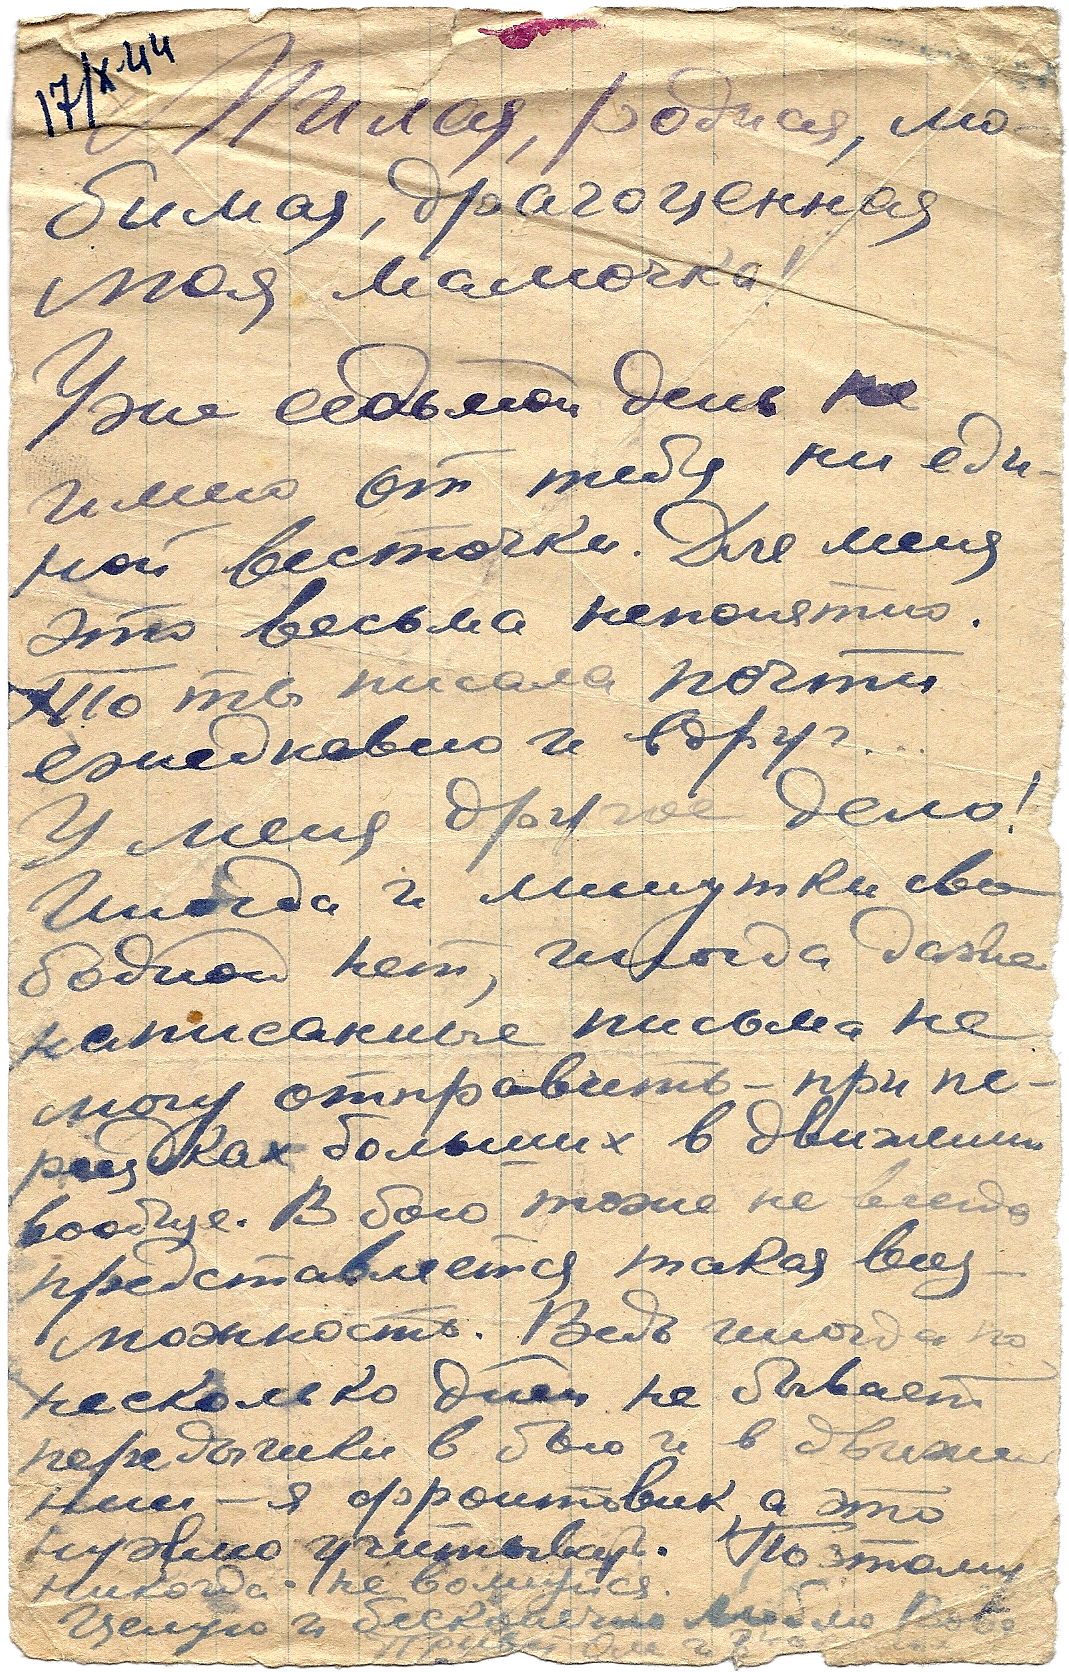 17/X 44
Милая, родная, лю-
бимая, драгоценная
моя мамочка!
Уже седьмой день не
имею от тебя ни еди-
ной весточки. Для меня
это весьма непонятно.
То ты писала почти
ежедневно и вдруг....
У меня другое дело!
Иногда и минутки сво
бодной нет, иногда даже
написанные письма не
могу отправить – при пе-
рядках больших в движении
вообще. В бою тоже не всегда
представляется такая воз-
можность. Ведь иногда по
несколько дней не бывает
передышки в бою и в движе
нии – я фронтовик а это
нужно учитывать. Поэтому
никогда не волнуйся.
Целую и бесконечно люблю Вова